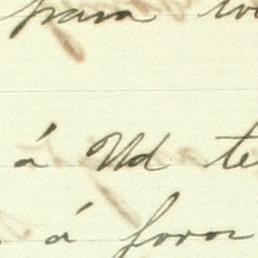 para
á Ud te
á favor